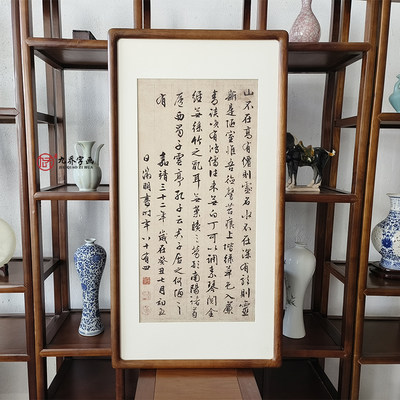 山不在高有僊則名水不在深有龍則靈
斯是陋室惟吾德馨苔痕上階綠草色入簾
青談笑有鴻儒往來無白丁可以調素琴閱金
經無絲竹之亂耳無案牘之勞形南陽諸葛
廬西蜀子雲亭孔子云君子居之何陋之
有 嘉靖三十二年歲在癸丑七月初五
日徵明書時年八十有四
九乔字画